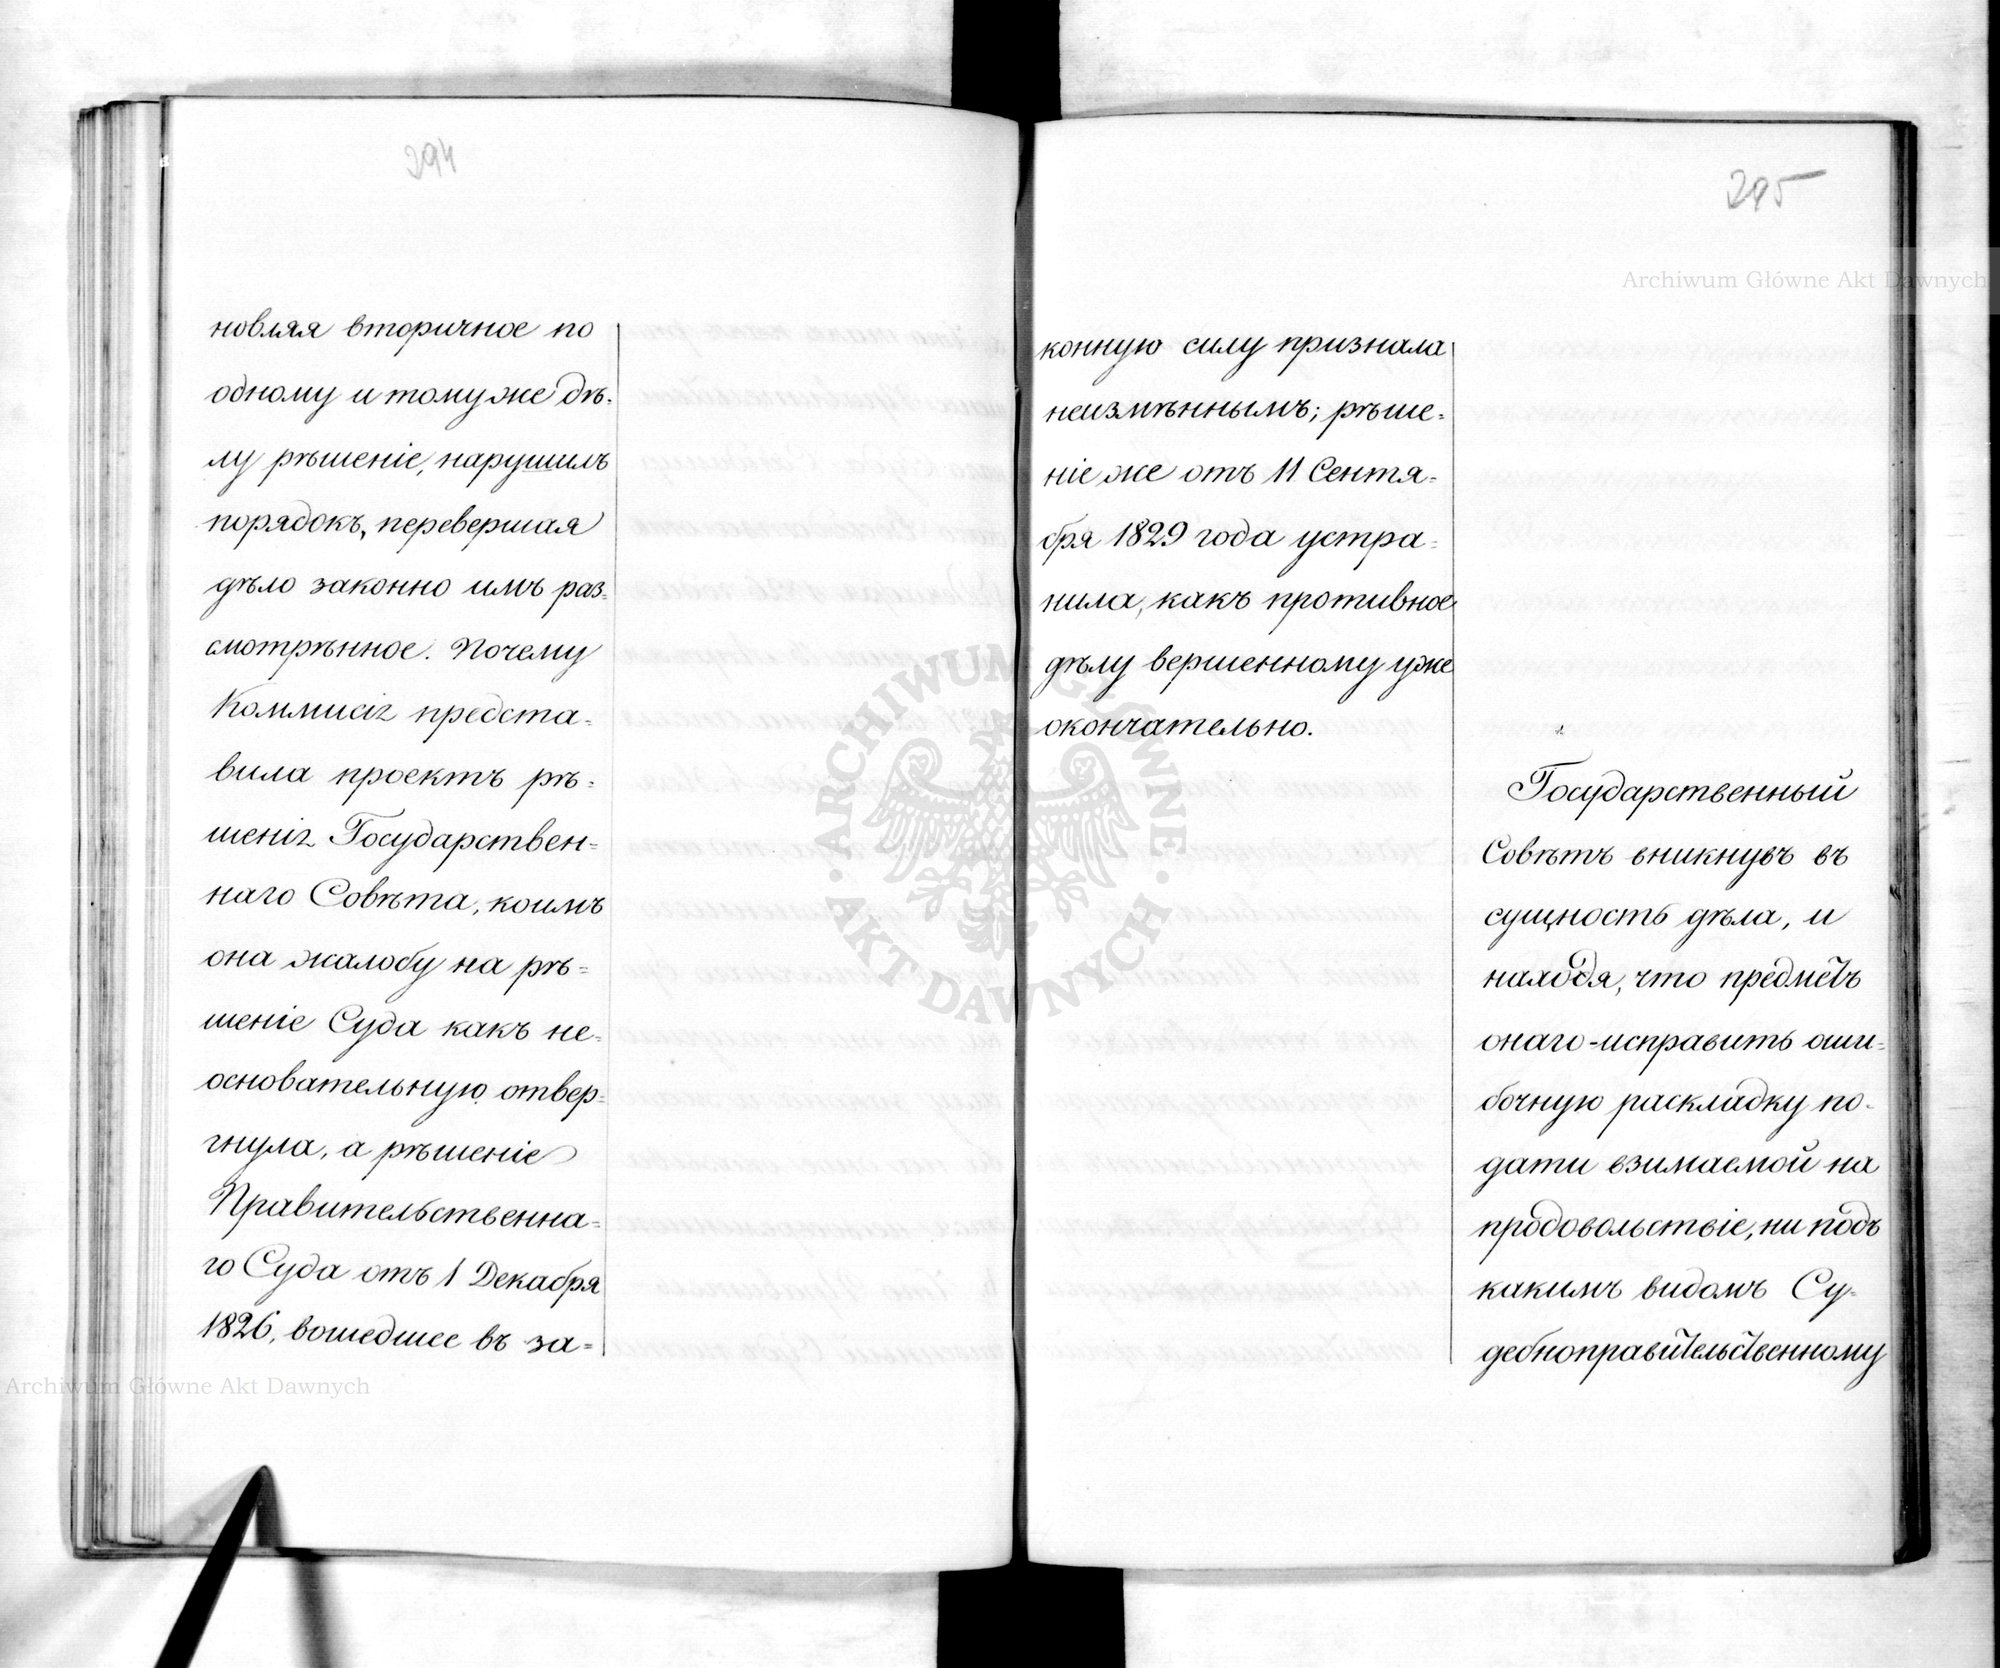 294
новляя вторичное по
одному и томуже дѣ-
лу рѣшеніе, нарушилъ
порядокъ, перевершая
дѣло законно имъ раз-
смотрѣнное. Почему
Коммисія предста-
вила проектъ рѣ-
шенія Государствен-
наго Совѣта, коимъ
она жалобу на рѣ-
шеніе Суда какъ не-
основательную отвер-
гнула, а рѣшеніе
Правительственна-
го Суда отъ 1 Декабря
1826, вошедшее въ за-
295
конную силу признала
неизмѣннымъ; рѣше-
ніе же отъ 11 Сентя-
бря 1829 года устра-
нила, какъ противное
дѣлу вершенному уже
окончательно.
Государственный
Совѣтъ вникнувъ въ
сущность дѣла, и
находя, что предметъ
онаго - исправить оши-
бочную раскладку по-
дати взимаемой на
продовольствіе, ни подъ
какимъ видомъ Су-
дебноправительственному
Archiwum Główne Akt Dawnych
Archiwum Główne Akt Dawnych
ARCHIWUM GŁÓWNE
AKT DAWNYCH